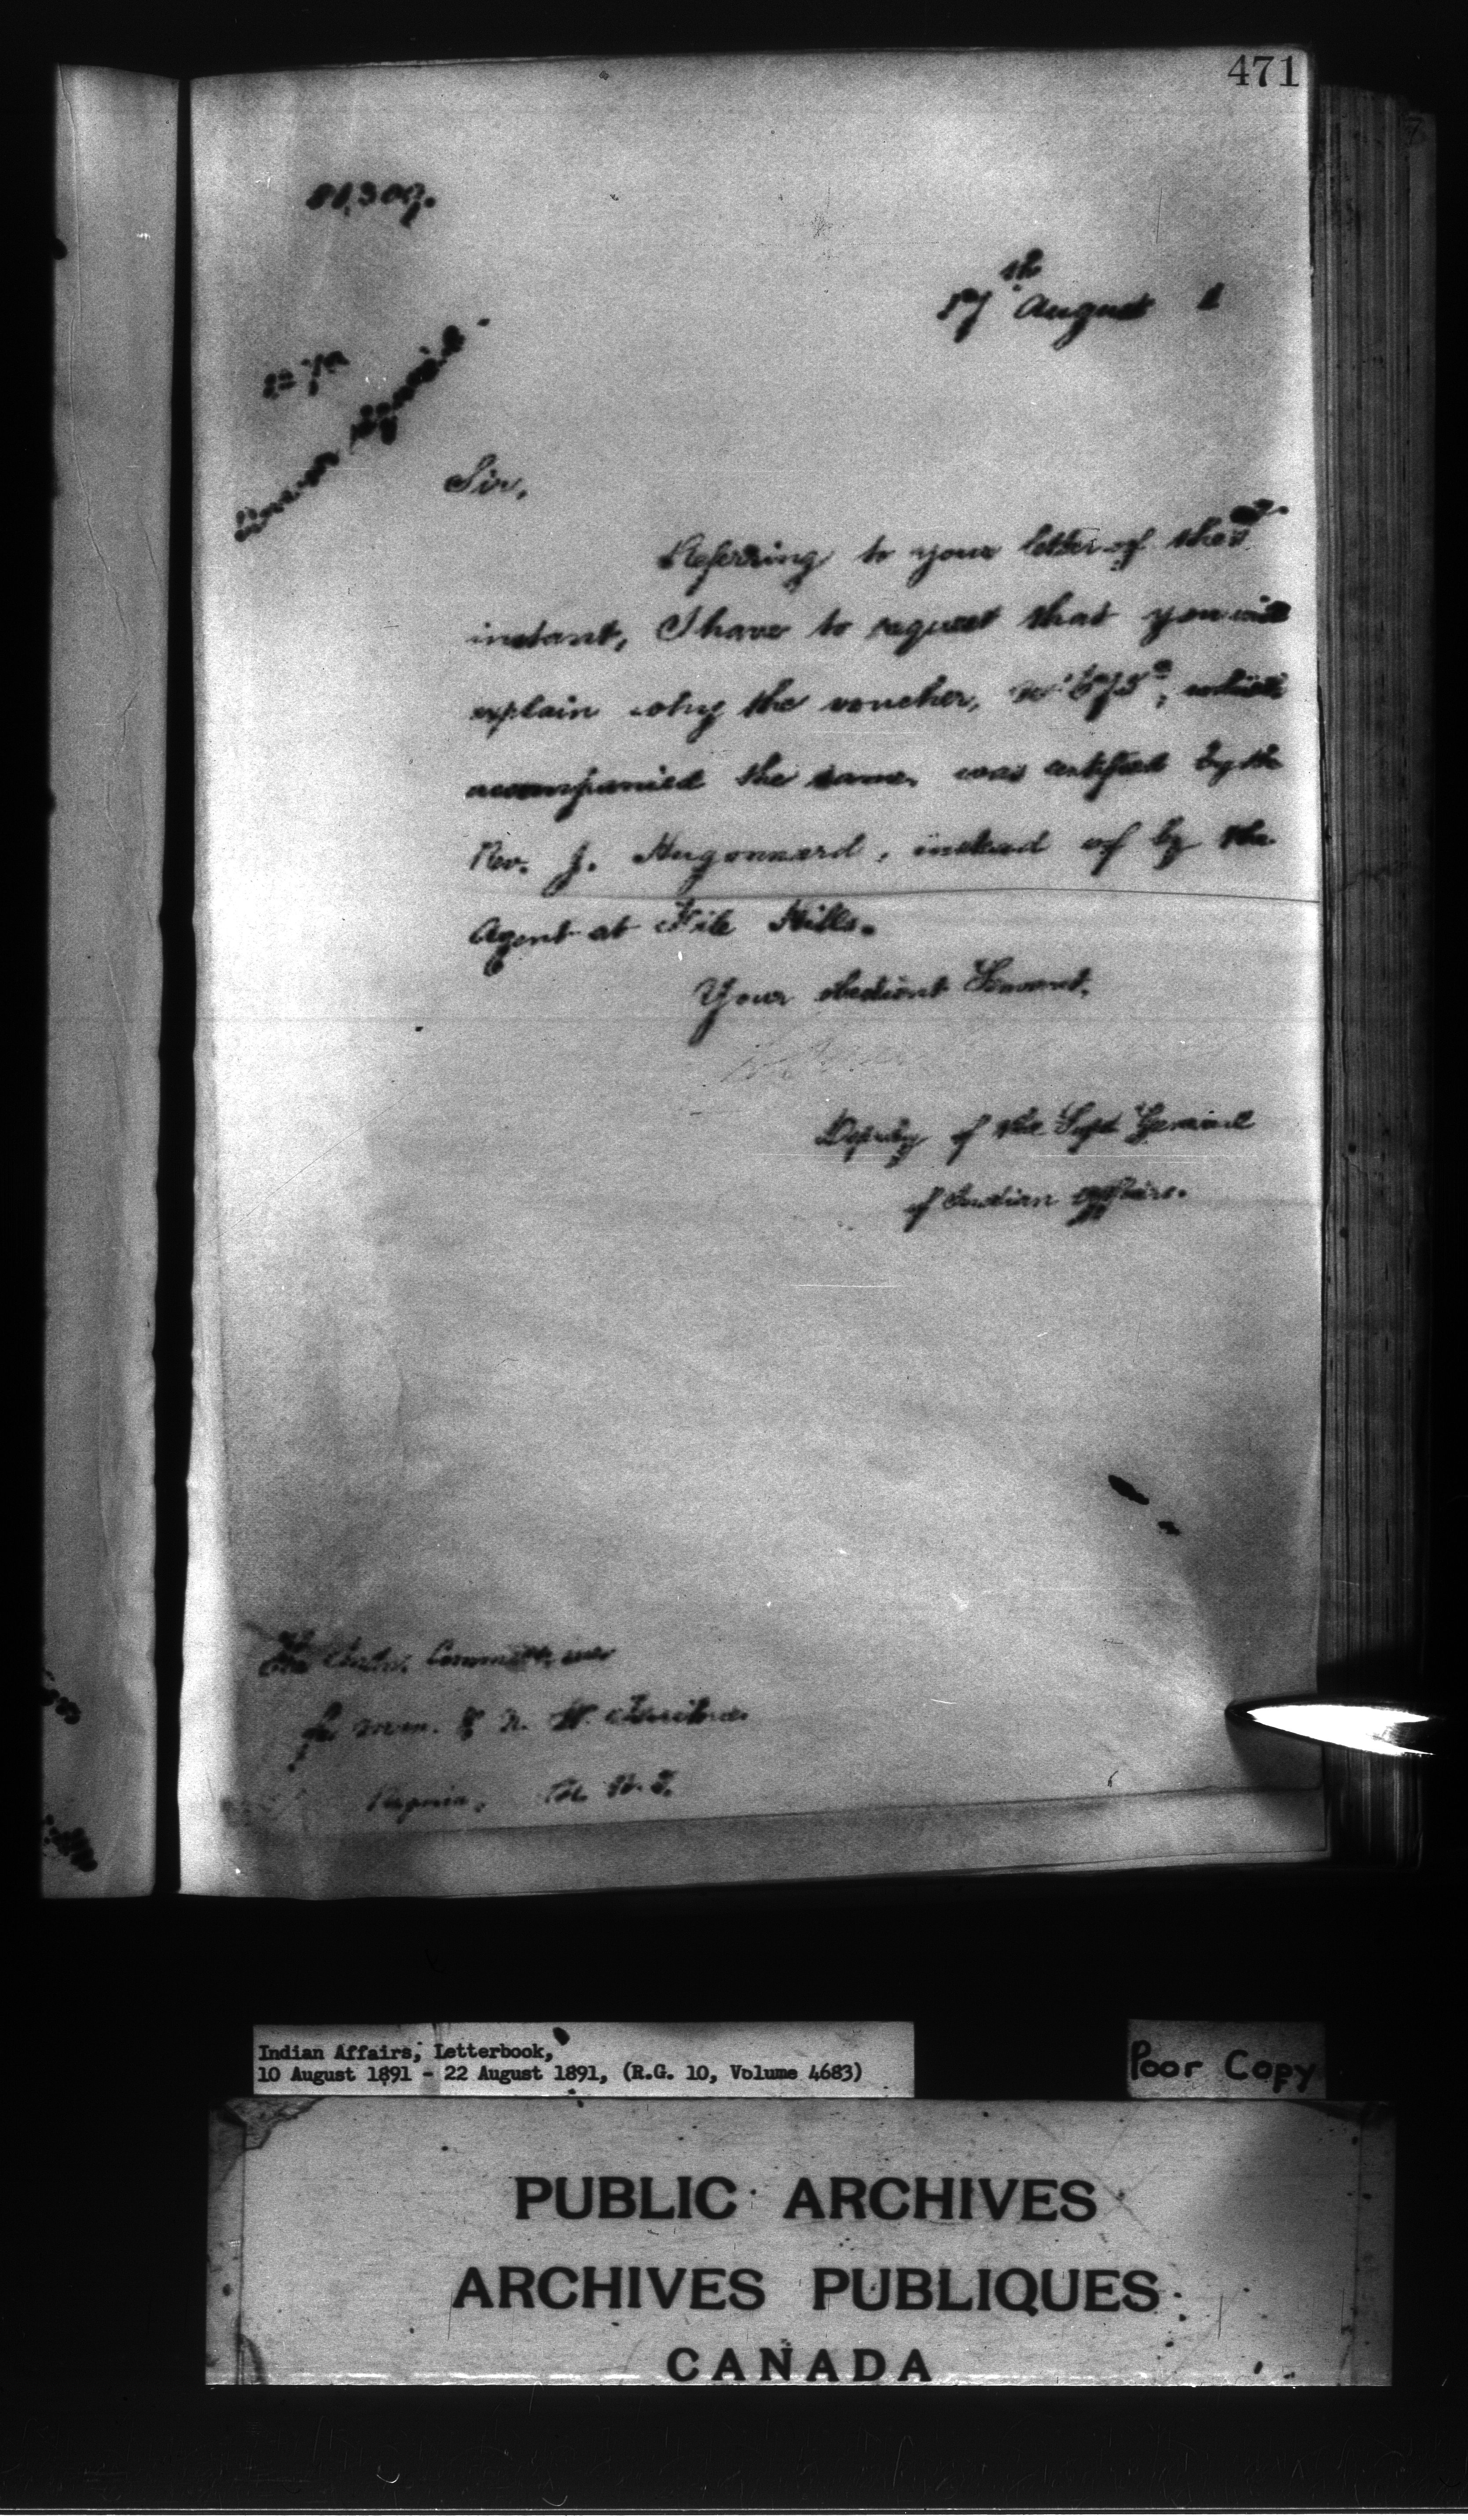 471
17th August 1
Sir,
Referring to your letter of the
instant, I have to request that you will
explain why the voucher, which
accompanied the same, was certified by the
Rev. J. Hugonnard, instead of by the
Agent at File Hills.
Your obedient Servant,
Deputy of the Supt General
of Indian Affairs.
The Indn. Commissioner
for Man. & N. W. Territories
Regina, N. W. T.
Indian Affairs, Letterbook,
10 August 1891 - 22 August 1891, (R.G. 10, Volume 4683)
Poor Copy
PUBLIC ARCHIVES
ARCHIVES PUBLIQUES
CANADA